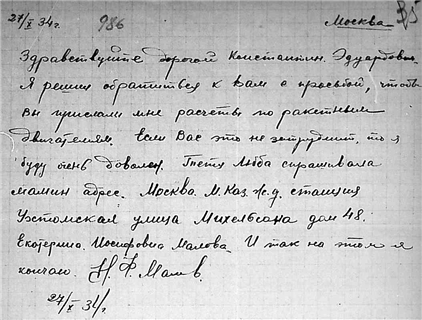 27/X 34г. 986 Москва 35
Здравствуйте дорогой Константин Эдуардович.
Я решил обратиться к вам с просьбой, чтобы
Вы прислали мне расчеты по ракетным
двигателям. Если Вас это не затруднит, то я
буду очень доволен. Тетя Люба спрашивала
мамин адрес. Москва. М. Каз. ж. д. станция
Ухтомская улица Михельсона дом 48.
Екатерина Иосифовна Малова. И так на этом я
кончаю. Н. Ф. Малов.
27/X 34г.